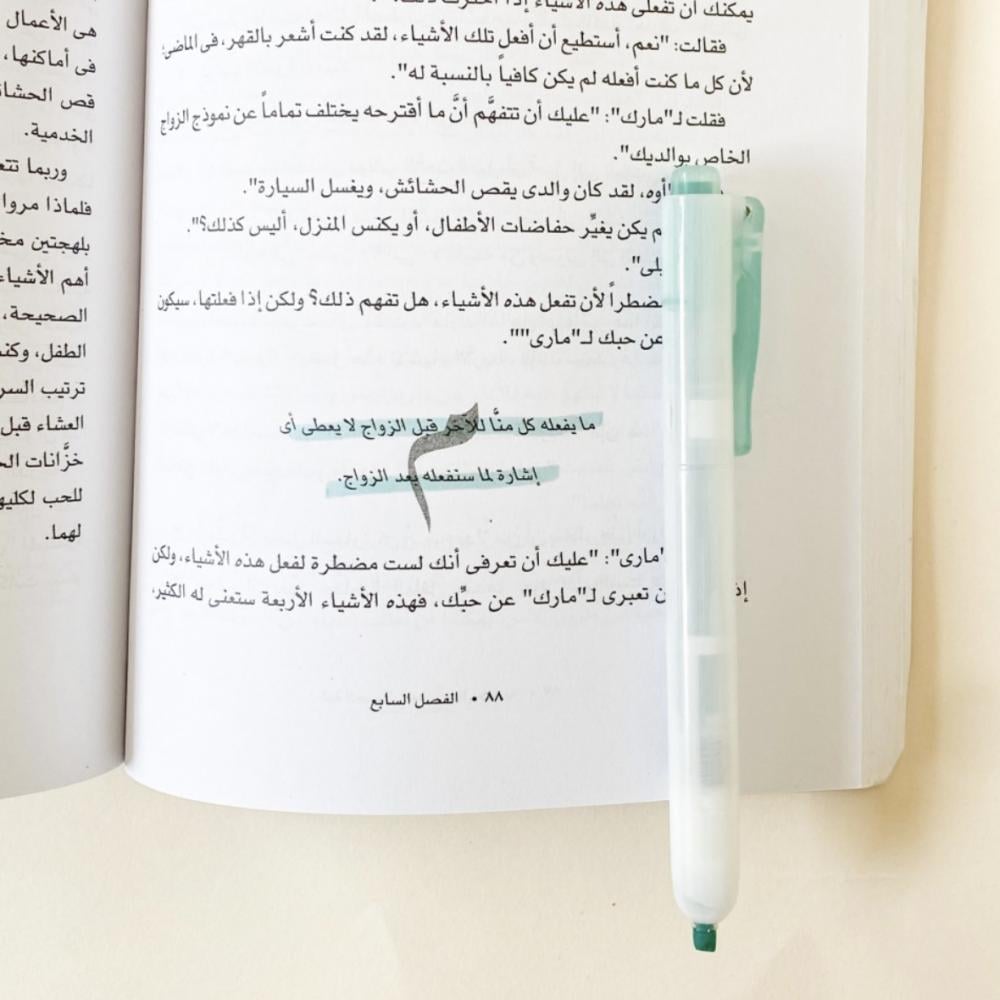 يمكنك أن تفعلى هذه الأشياء إذا اخترت ذلك؟".
فقالت: "نعم، أستطيع أن أفعل تلك الأشياء، لقد كنت أشعر بالقهر، فى الماضى؛
لأن كل ما كنت أفعله لم يكن كافياً بالنسبة له".
فقلت لـ"مارك": "عليك أن تتفهَّم أنَّ ما أقترحه يختلف تماماً عن نموذج الزواج
الخاص بوالديك".
أوه، لقد كان والدى يقص الحشائش، ويغسل السيارة".
يكن يغيِّر حفاضات الأطفال، أو يكنس المنزل، أليس كذلك؟".
بلى".
مضطراً لأن تفعل هذه الأشياء، هل تفهم ذلك؟ ولكن إذا فعلتها، سيكون
عن حبك لـ"مارى"".
ما يفعله كل منَّا للآخر قبل الزواج لا يعطى أى
إشارة لما سنفعله بعد الزواج.
مارى": "عليك أن تعرفى أنك لست مضطرة لفعل هذه الأشياء، ولكن
تعبرى لـ"مارك" عن حبِّك، فهذه الأشياء الأربعة ستعنى له الكثير،
٨٨ • الفصل السابع
هى الأعمال
فى أماكنها،
قص
الخدمية.
وربما
فلماذا
بلهجتين
أهم الأشياء
الصحيحة،
الطفل،
ترتيب
العشاء قبل
خزَّانات
للحب
لهما.